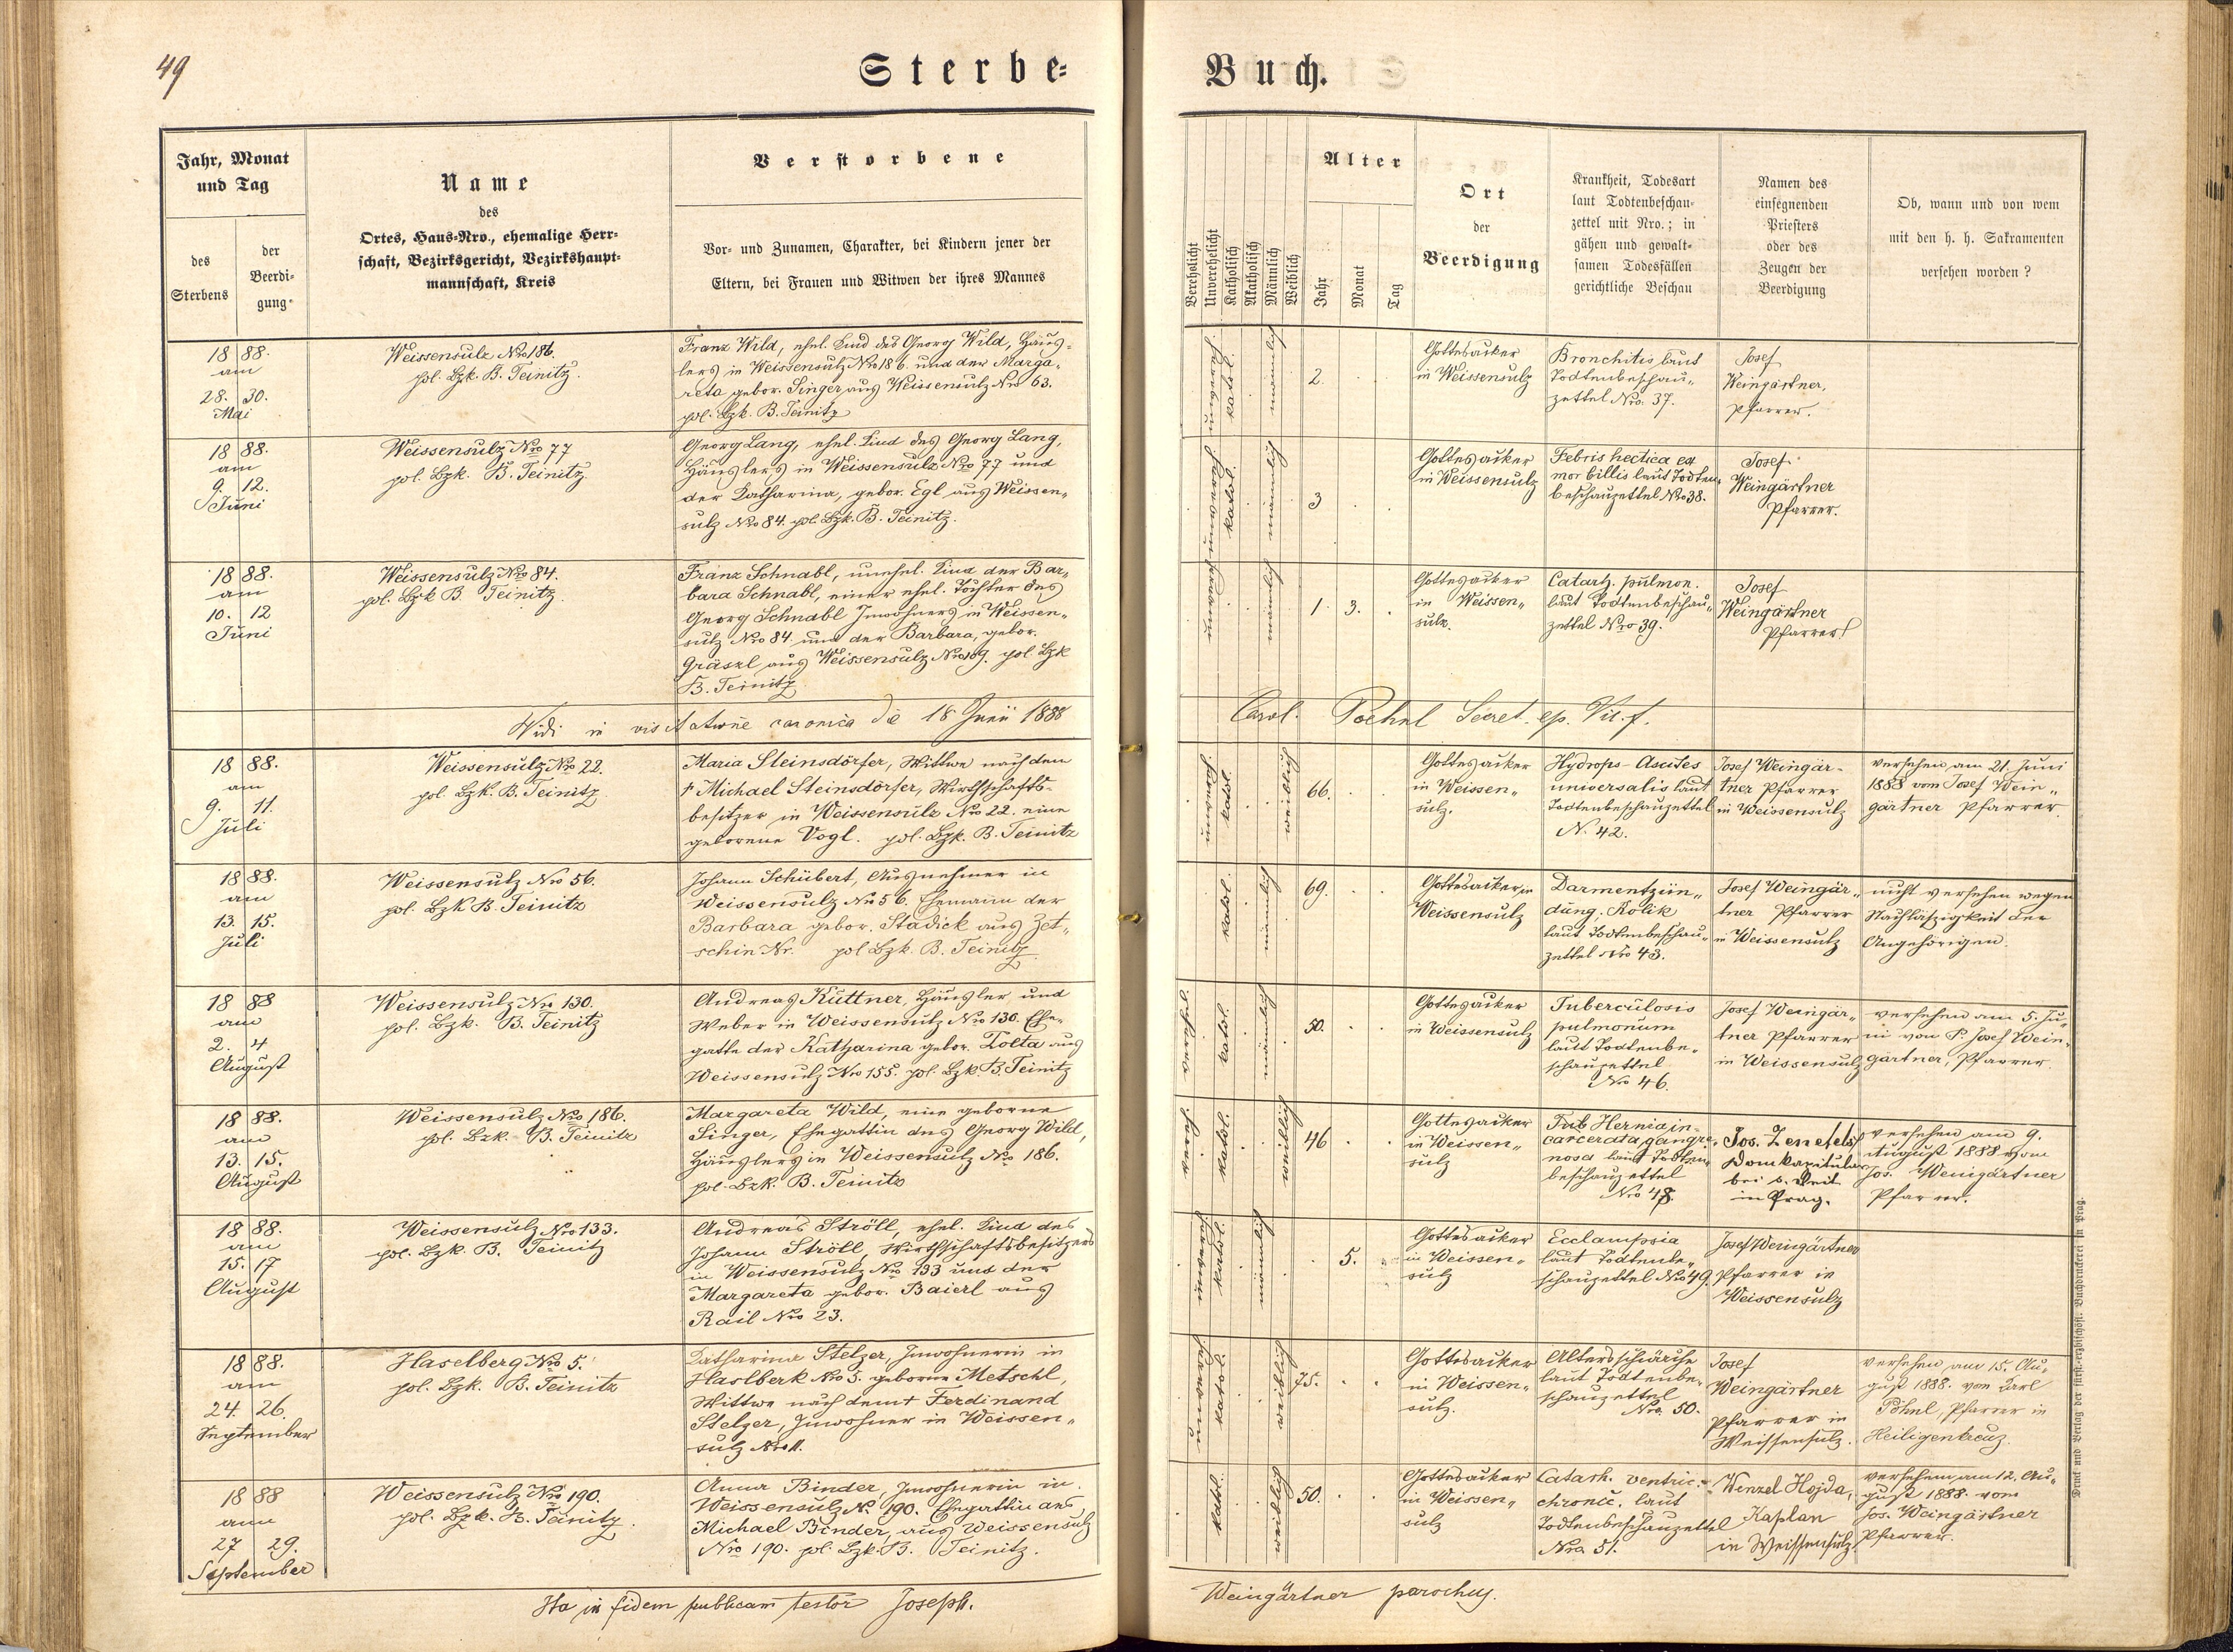 49
Sterbe=
Buch.
Jahr, Monat
und Tag
des
Sterbens
der
Beerdi-
gung
Name
des
Ortes, Haus-Nro., ehemalige Herr-
schaft, Bezirksgericht, Bezirkshaupt-
mannschaft, Kreis
Verstorbene
Vor- und Zunamen, Charakter, bei Kindern jener der
Eltern, bei Frauen und Witwen der ihres Mannes
Verehelicht
Unverehelicht
Katholisch
Akatholisch
Männlich
Weiblich
Alter
Jahr
Monat
Tag
Ort
der
Beerdigung
Krankheit, Todesart
laut Todtenbeschau-
zettel mit Nro.; in
gähen und gewalt-
samen Todesfällen
gerichtliche Beschau
Namen des
einsegnenden
Priesters
oder des
Zeugen der
Beerdigung
Ob, wann und von wem
mit den h. h. Sakramenten
versehen worden?
18 88.
am
28. 30.
Mai
Weissensulz Nro 186.
pol. Bzk. B. Teinitz.
Franz Wild, ehel. Kind des Georg Wild, Häus-
lers in Weissensulz Nro 186. und der Marga-
reta gebor. Singer aus Weissensulz Nro 63.
pol. Bzk. B. Teinitz
unverehel.
kathol.
männlich
2.
Gottesacker
in Weissensulz
Bronchitis laut
Todtenbeschau-
zettel Nro. 37.
Josef
Weingärtner,
Pfarrer.
18 88.
am
9. 12.
Juni
Weissensulz Nro 77
pol. Bzk. B. Teinitz
Georg Lang, ehel. Kind des Georg Lang,
Häuslers in Weissensulz Nro 77 und
der Katharina, gebor. Egl aus Weissen-
sulz Nro 84. pol. Bzk. B. Teinitz.
unverehel.
kathol.
männlich
3
Gottesacker
in Weissensulz
Febris hectica ex
morbillis laut Todten-
beschauzettel Nro 38.
Josef
Weingärtner
Pfarrer.
18 88.
am
10. 12
Juni
Weissensulz Nro 84.
pol. Bzk B. Teinitz.
Franz Schnabl, unehel. Kind der Bar-
bara Schnabl, einer ehel. Tochter des
Georg Schnabl Inwohners in Weissen-
sulz Nro 84 und der Barbara, gebor.
Gräszl aus Weissensulz Nro 109. pol. Bzk
B. Teinitz
männlich
1. 3.
Gottesacker
in Weissen-
sulz.
Catarh. pulmon.
laut Todtenbeschau-
zettel Nro 39.
Josef
Weingärtner
Pfarrer
Vidi in visitatione canonica die 18 Junii 1888
Carol. Pöchnl Secret. ep. Vic. f.
18 88.
am
9. 11.
Juli
Weissensulz Nro 22.
pol. Bzk. B. Teinitz
Maria Steinsdörfer, Wittwe nach dem
† Michael Steinsdörfer, Wirthschafts-
besitzer in Weissensulz Nro 22. eine
geborene Vogl. pol. Bzk. B. Teinitz
kathol.
weiblich
66.
Gottesacker
in Weissen-
sulz.
Hydrops-Ascites
universalis laut
Todtenbeschauzettel
N. 42.
Josef Weingär-
tner Pfarrer
in Weissensulz
versehen am 21. Juni
1888 vom Josef Wein-
gärtner Pfarrer.
18 88.
am
13. 15.
Juli
Weissensulz Nro 56.
pol. Bzk B. Teinitz
Johann Schübert, Ausnehmer in
Weissensulz Nro 56. Ehemann der
Barbara gebor. Stadick aus Zet-
schin Nr. pol Bzk. B. Teinitz.
kathol.
männlich
69.
Gottesacker in
Weissensulz
Darmentzün-
dung, Kolik
laut Todtenbeschau-
zettel Nro 43.
Josef Weingär-
tner Pfarrer
in Weissensulz
nicht versehen wegen
Nachläszigkeit der
Angehörigen.
18 88
am
2. 4
August
Weissensulz Nro 130.
pol. Bzk. B. Teinitz
Andreas Küttner, Häusler und
Weber in Weissensulz Nro 130. Ehe-
gatte der Katharina gebor. Tolta aus
Weissensulz Nro 155. pol. Bzk. B. Teinitz
kathol.
männlich
50.
Gottesacker
in Weissensulz
Tuberculosis
pulmonum
laut Todtenbe-
schauzettel
Nro 46.
Josef Weingär-
tner Pfarrer
in Weissensulz
versehen am 5. Ju-
ni von P. Josef Wein-
gärtner, Pfarrer.
18 88.
am
13. 15.
August
Weissensulz Nro 186.
pol. Bzk. B. Teinitz
Margareta Wild, eine geborne
Singer, Ehegattin des Georg Wild,
Häuslers in Weissensulz Nro 186.
pol. Bzk. B. Teinitz
kathol.
weiblich
46
Gottesacker
in Weissen-
sulz
Hernia in-
carcerata gangre-
nosa laut Todten-
beschauzettel
Nro 48.
Jos. Zenefels
Domkapitular
bei s. Veit
in Prag.
versehen am 9.
August 1888 vom
Jos. Weingärtner
Pfarrer.
18 88.
am
15. 17
August
Weissensulz Nro 133.
pol. Bzk. B. Teinitz
Andreas Ströll, ehel. Kind des
Johann Ströll, Wirthschaftsbesitzers
in Weissensulz Nro 133 und der
Margareta gebor. Baierl aus
Rail Nro 23.
kathol.
männlich
5.
Gottesacker
in Weissen-
sulz
Ecclampsia
laut Todtenbe-
schauzettel Nro 49.
Josef Weingärtner
Pfarrer in
Weissensulz
18 88.
am
24. 26.
September
Haselberg Nro 5.
pol. Bzk. B. Teinitz
Katharina Stelzer, Inwohnerin in
Haslberk Nro 5. geborne Metschl,
Wittwe nach dem † Ferdinand
Stelzer, Inwohner in Weissen-
sulz Nro 11.
kathol.
weiblich
75.
Gottesacker
in Weissen-
sulz.
Altersschwäche
laut Todtenbe-
schauzettel
Nro. 50.
Josef
Weingärtner
Pfarrer in
Weissensulz.
versehen am 15. Au-
gust 1888. von Karl
Pöhnl, Pfarrer in
Heiligenkreuz.
18 88
am
27 29.
September
Weissensulz Nro 190.
pol. Bzk. B. Teinitz.
Anna Binder, Inwohnerin in
Weissensulz No 190. Ehegattin des
Michael Binder, aus Weissensulz
Nro 190. pol. Bzk. B. Teinitz.
kathol.
weiblich
50.
Gottesacker
in Weissen-
sulz
Catarh. ventric.
chronic. laut
Todtenbeschauzettel
Nro. 51.
Wenzel Hojda,
Kaplan
in Weissensulz.
versehen am 12. Au-
gust 1888 vom
Jos. Weingärtner
Pfarrer.
Ita in fidem publicam testor Joseph.
Weingärtner parochus.
Druck und Verlag der fürst-erzbischöfl. Buchdruckerei in Prag.